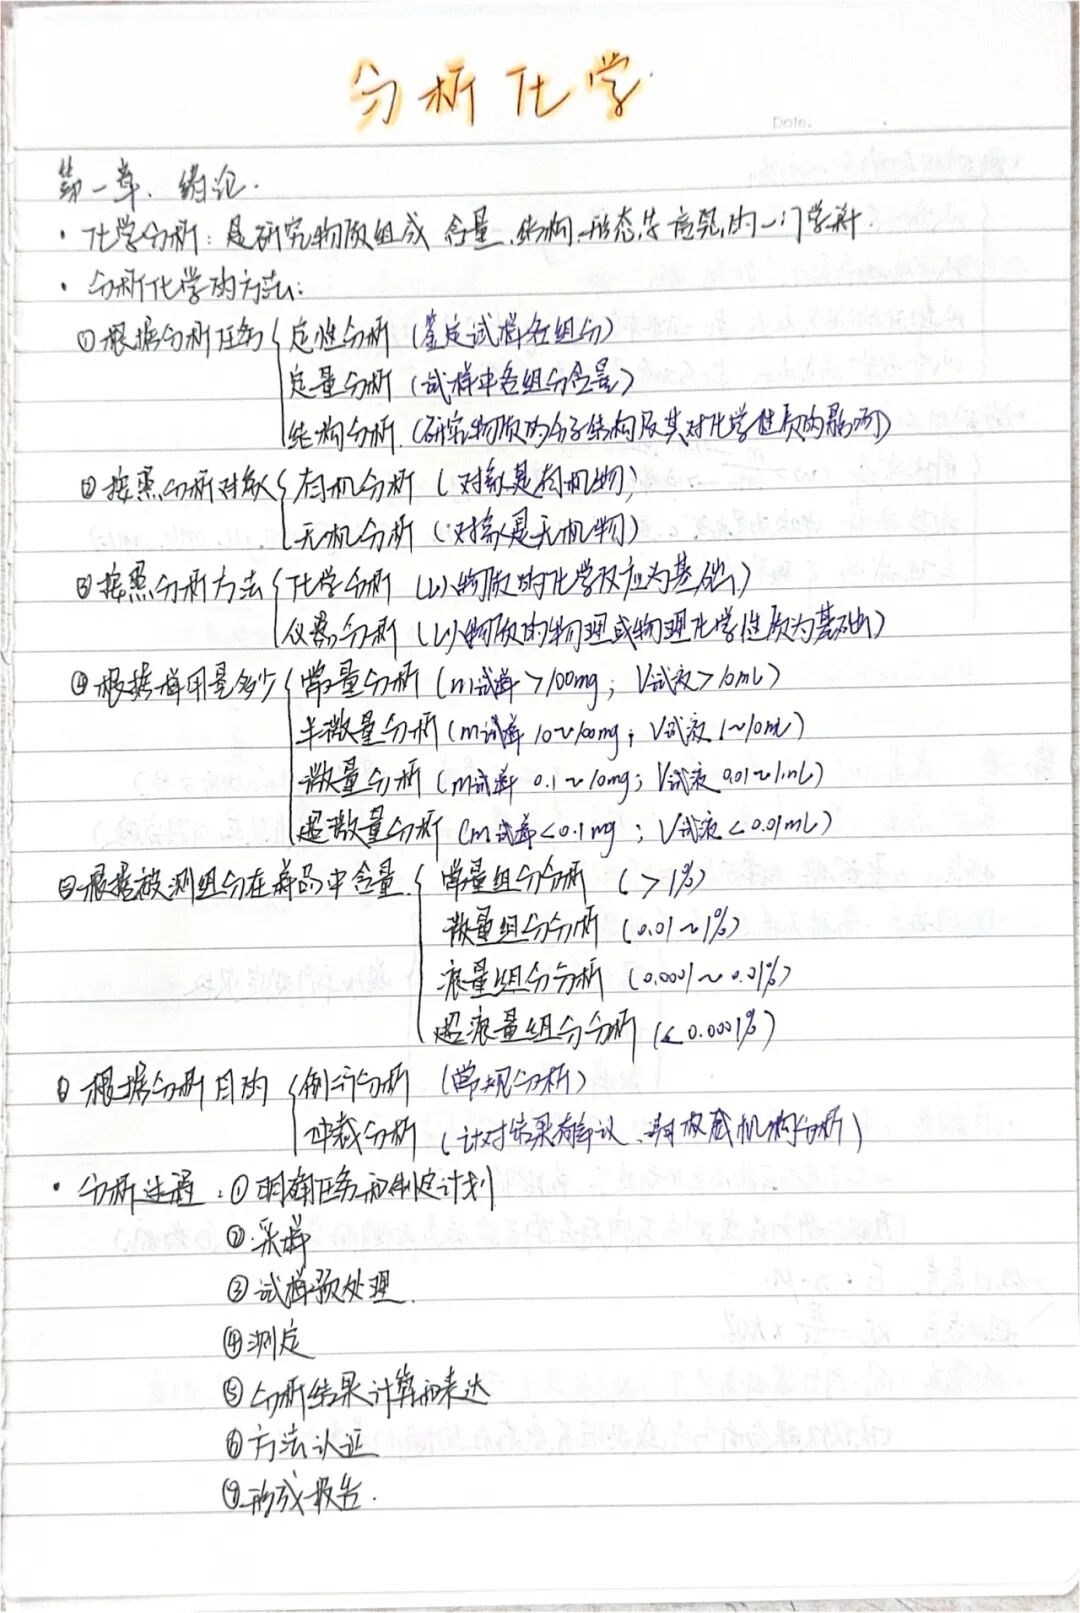 分析化学
Date.
第一章. 绪论.
· 化学分析: 是研究物质组成 含量、结构、形态等信息的一门学科.
· 分析化学的方法:
①根据分析任务{定性分析 (鉴定试样各组分)
定量分析 (试样中各组分含量)
结构分析 (研究物质的分子结构及其对化学性质的影响)
②按照分析对象{有机分析 (对象是有机物)
无机分析 (对象是无机物)
③按照分析方法{化学分析 (以物质的化学反应为基础)
仪器分析 (以物质的物理或物理化学性质为基础)
④根据样用量多少{常量分析 (m试样>100mg; V试液>10mL)
半微量分析 (m试样 10~100mg; V试液 1~10mL)
微量分析 (m试样 0.1~10mg; V试液 0.01~1mL)
超微量分析 (m试样<0.1mg; V试液<0.01mL)
⑤根据被测组分在样品中含量{常量组分分析 (>1%)
微量组分分析 (0.01~1%)
痕量组分分析 (0.0001~0.01%)
超痕量组分分析 (<0.0001%)
⑥根据分析目的{例行分析 (常规分析)
仲裁分析 (针对结果有争议、权威机构分析)
· 分析过程: ①明确任务和制定计划
②采样
③试样预处理.
④测定
⑤分析结果计算和表达
⑥方法认证
⑦形成报告.